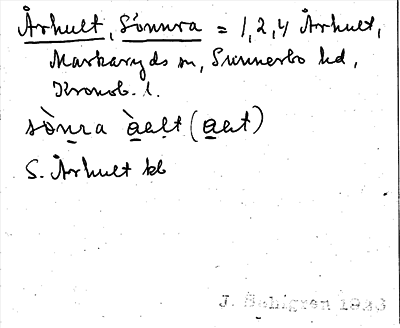 Århult, Sönnra = 1, 2, 4 Århult,
Markaryds sn, Sunnerbo hd,
Kronob. l.
sònra àelt (aelt)
S. Århult kb
J. Sahlgren 1923